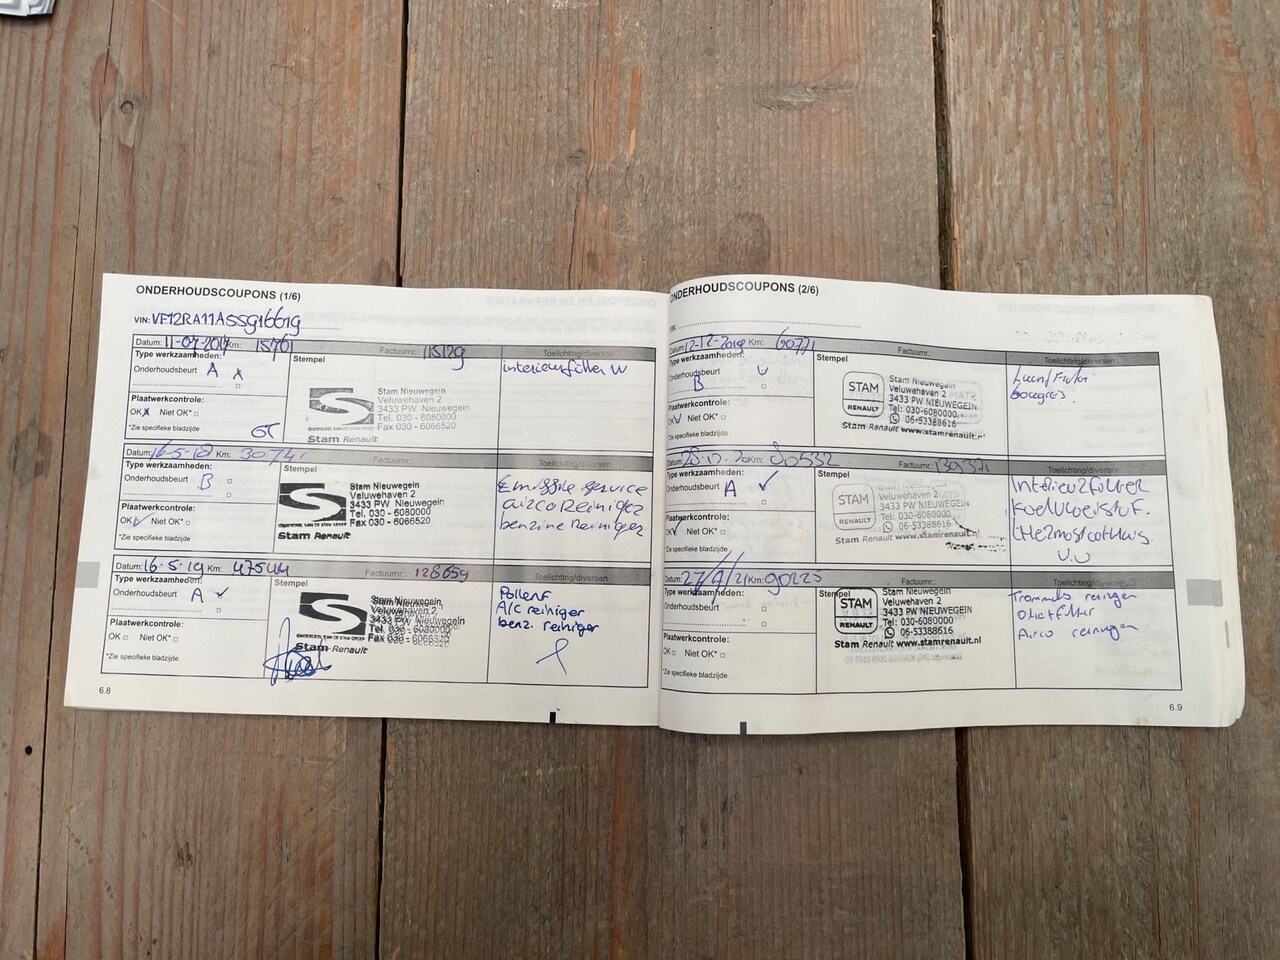 ONDERHOUDSCOUPONS (1/6)
VIN: VF12RA11A55916619
Datum: 11-07-2017 Km: 15761
Type werkzaamheden:
Onderhoudsbeurt A x
Stempel
Factuurnr.: 115129
Toelichting/diversen
interieurfilter W
Plaatwerkcontrole:
OK x Niet OK* □
*Zie specifieke bladzijde
Stam Nieuwegein
Veluwehaven 2
3433 PW Nieuwegein
Tel. 030 - 6080000
Fax 030 - 6066520
Stam Renault
Datum: 16-5-18 Km: 30741
Type werkzaamheden:
Onderhoudsbeurt B
Stempel
Factuurnr.:
Toelichting/diversen
Emissie service
airco Reiniger
benzine Reiniger
Plaatwerkcontrole:
OK ✓ Niet OK* □
*Zie specifieke bladzijde
Stam Nieuwegein
Veluwehaven 2
3433 PW Nieuwegein
Tel. 030 - 6080000
Fax 030 - 6066520
Stam Renault
Datum: 16-5-19 Km: 47544
Type werkzaamheden:
Onderhoudsbeurt A ✓
Stempel
Factuurnr.: 128659
Toelichting/diversen
Pollenf
A/C reiniger
benz. reiniger
Plaatwerkcontrole:
OK □ Niet OK* □
*Zie specifieke bladzijde
Stam Nieuwegein
Veluwehaven 2
3433 PW Nieuwegein
Tel. 030 - 6080000
Fax 030 - 6066520
Stam Renault
6.8
ONDERHOUDSCOUPONS (2/6)
VIN:
Datum: 12-12-2019 Km: 60771
Type werkzaamheden:
Onderhoudsbeurt B
Stempel
Factuurnr.:
Toelichting/diversen
Plaatwerkcontrole:
OK ✓ Niet OK* □
*Zie specifieke bladzijde
STAM
RENAULT
Stam Nieuwegein
Veluwehaven 2
3433 PW NIEUWEGEIN
Tel: 030-6080000
06-53388616
Stam Renault www.stamrenault.nl
Km: 80532
Type werkzaamheden:
Onderhoudsbeurt A ✓
Stempel
Factuurnr.: 139371
Toelichting/diversen
Interieurfilter
Koelvloeistof.
Plaatwerkcontrole:
OK ✓ Niet OK* □
*Zie specifieke bladzijde
STAM
RENAULT
Stam Nieuwegein
Veluwehaven 2
3433 PW NIEUWEGEIN
Tel: 030-6080000
06-53388616
Stam Renault www.stamrenault.nl
Datum: 27/9/21 Km: 90225
Type werkzaamheden:
Onderhoudsbeurt
Stempel
Factuurnr.:
Toelichting/diversen
Trommels reinigen
Airco reinigen
Plaatwerkcontrole:
OK □ Niet OK* □
*Zie specifieke bladzijde
STAM
RENAULT
Stam Nieuwegein
Veluwehaven 2
3433 PW NIEUWEGEIN
Tel: 030-6080000
06-53388616
Stam Renault www.stamrenault.nl
6.9